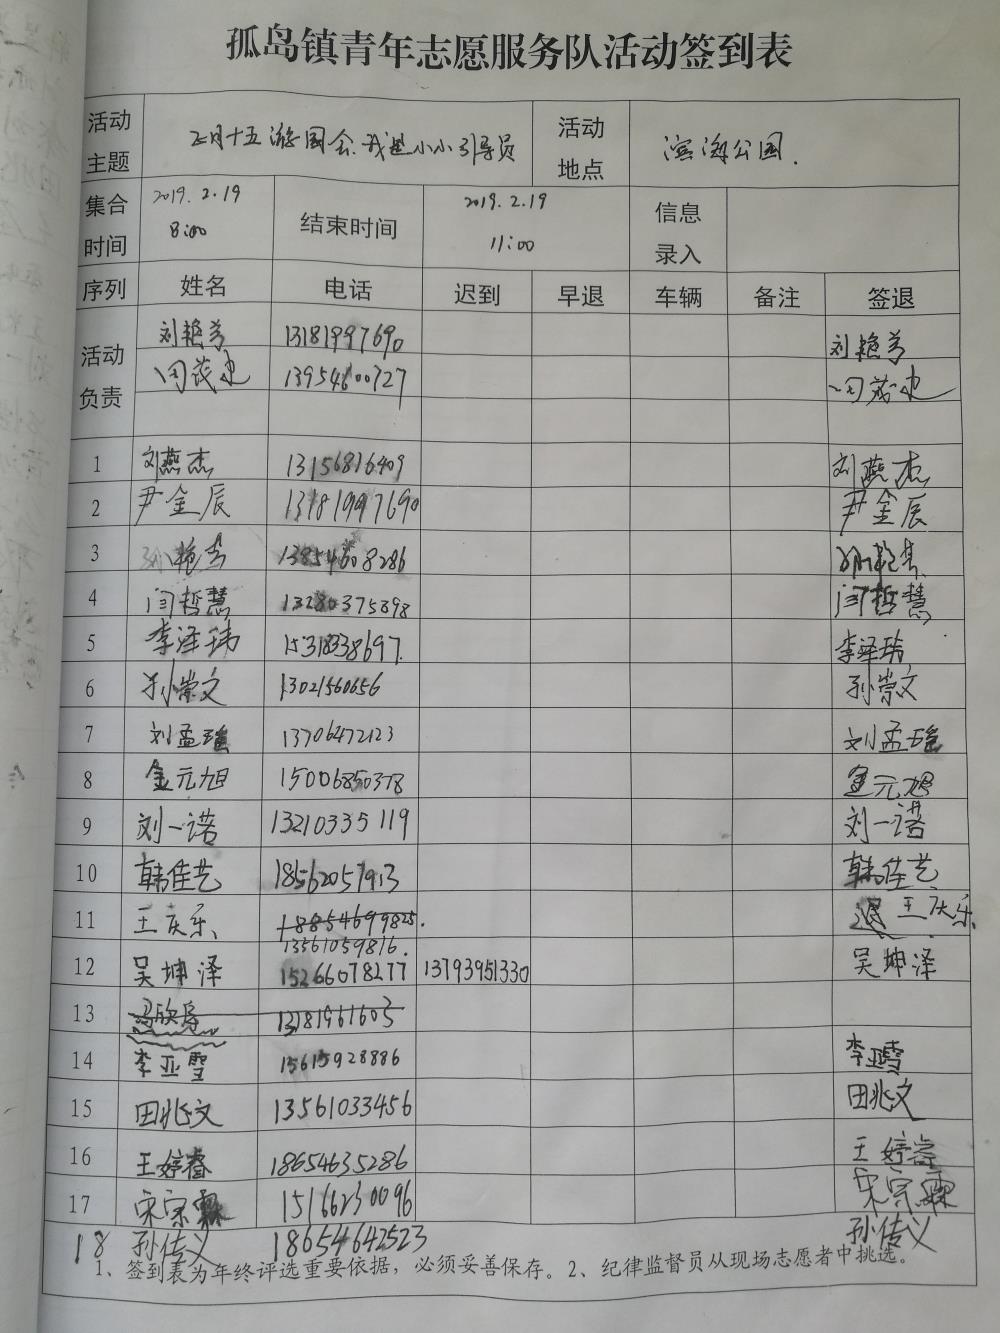 孤岛镇青年志愿服务队活动签到表
活动主题 正月十五游园会.我是小小引导员 活动地点 滨海公园.
集合时间 2019.2.19 8:00 结束时间 2019.2.19 11:00 信息录入
序列 姓名 电话 迟到 早退 车辆 备注 签退
活动负责 刘艳芳 13181997690 刘艳芳
田茂建 13954600727 田茂建
1 刘燕杰 13156816409 刘燕杰
2 尹金辰 13181997690 尹金辰
3 孙艳芳 13854608286
4 闫哲慧 13280375898 闫哲慧
5 李泽玮 15318338697. 李泽玮
6 孙崇文 13021560656 孙崇文
7 刘孟瑶 13706472123 刘孟瑶
8 金元旭 15006850378 金元旭
9 刘一诺 13210335119 刘一诺
10 韩佳艺 18562057913 韩佳艺
11 王庆乐 18854699825. 退 王庆乐
13561059816.
12 吴坤泽 15266078277 13793951330 吴坤泽
13 13181961603
14 李亚雪 15615928886 李亚雪
15 田兆文 13561033456 田兆文
16 王婷睿 18654635286 王婷睿
17 宋宗霖 15166230096 宋宗霖
18 孙传义 18654642523 孙传义
1、签到表为年终评选重要依据，必须妥善保存。2、纪律监督员从现场志愿者中挑选。